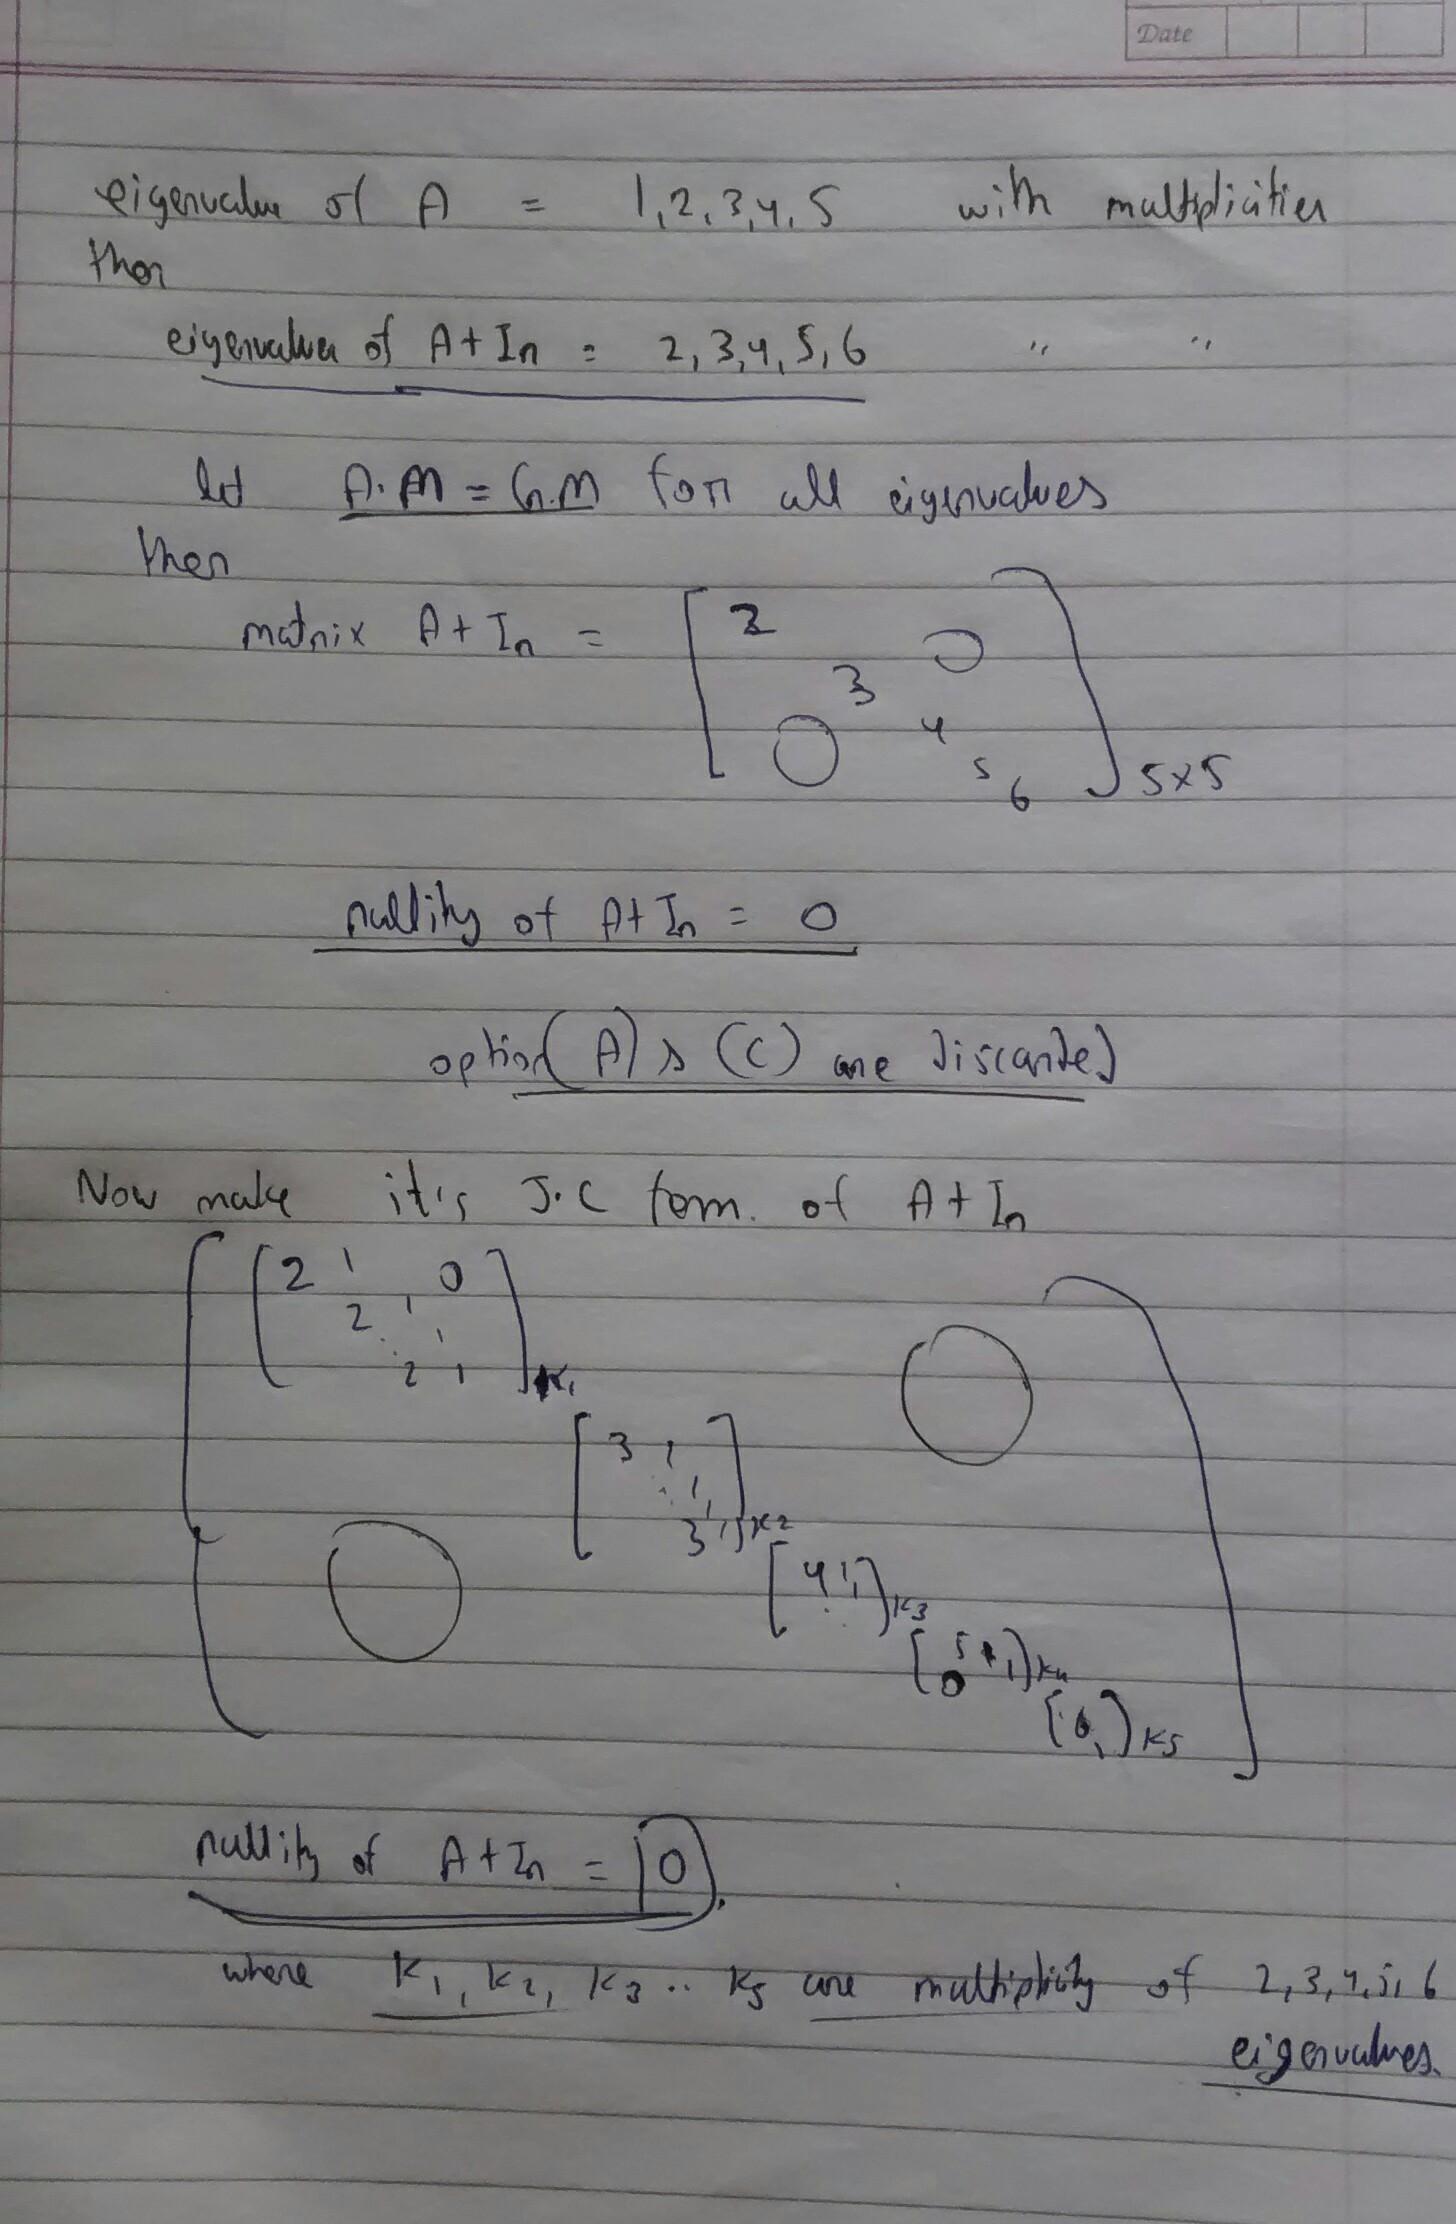 Date
eigenvalue of A = 1,2,3,4,5 with multiplicities
then
eigenvalues of A+In = 2,3,4,5,6 " "
let A.M = G.M for all eigenvalues
then
matrix A+In = [ 2 0
3
0 4
5
6 ] 5x5
nullity of A+In = 0
option (A) & (C) are discarded
Now make it's J.C form. of A+In
[ [ 2 1 0
2 1
1
2 1 ] K1
[ 3 1 0
1
3 1 ] K2
0 [ 4 1 1 ] K3
[ 5 1 1
0 ] K4
[ 6 1 ] K5 ]
nullity of A+In = 0.
where K1, K2, K3 .. K5 are multiplicity of 2,3,4,5,6
eigenvalues.